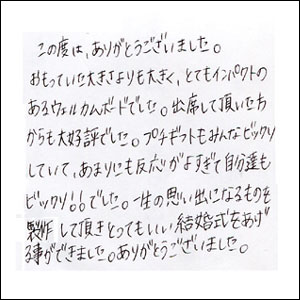 この度は、ありがとうございました。
おもっていた大きさよりも大きく、とてもインパクトの
あるウェルカムボードでした。出席して頂いた方
からも大好評でした。プチギフトもみんなビックリ
していて、あまりにも反応がよすぎて自分達も
ビックリ!!でした。一生の思い出になるものを
製作して頂きとってもいい結婚式をあげ
る事ができました。ありがとうございました。